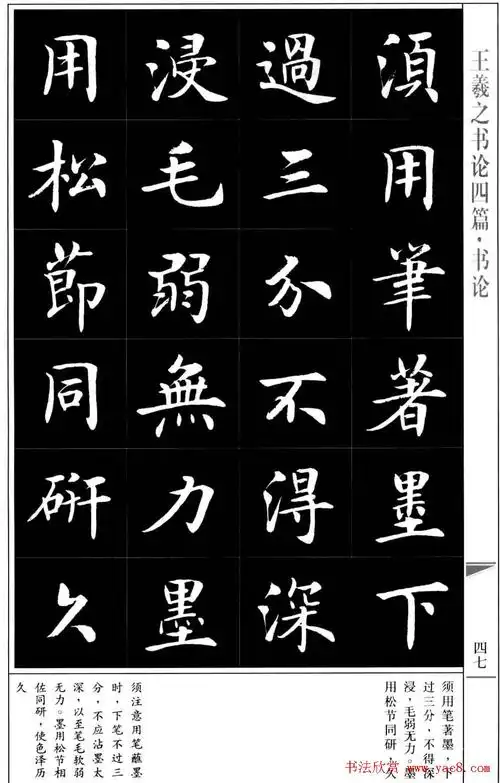 王羲之书论四篇·书论
四七
須用筆著墨下
過三分不得深
浸毛弱無力墨
用松節同研久
须用笔著墨，
过三分，不得深
浸，毛弱无力。墨
用松节同研，久
须注意用笔蘸墨
时，下笔不过三
分，不应沾墨太
深，以至笔毛软弱
无力。墨用松节相
佐同研，使色泽历
久
书法欣赏 www.yac8.com